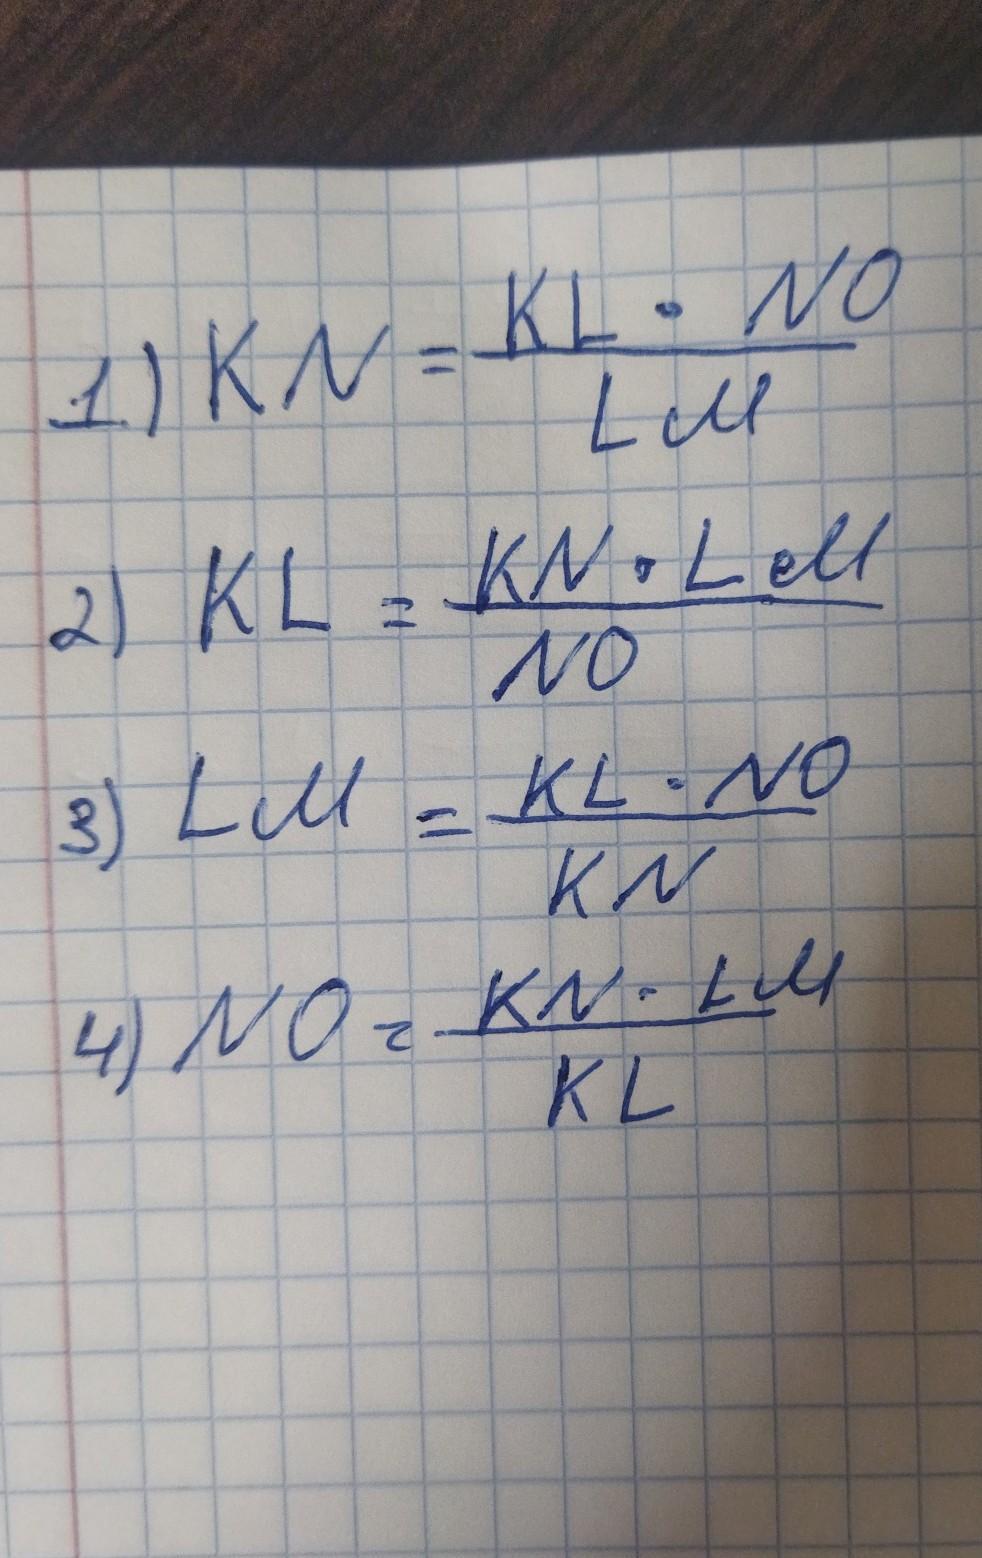 1) KN = KL · NO / LM
2) KL = KN · LM / NO
3) LM = KL · NO / KN
4) NO = KN · LM / KL